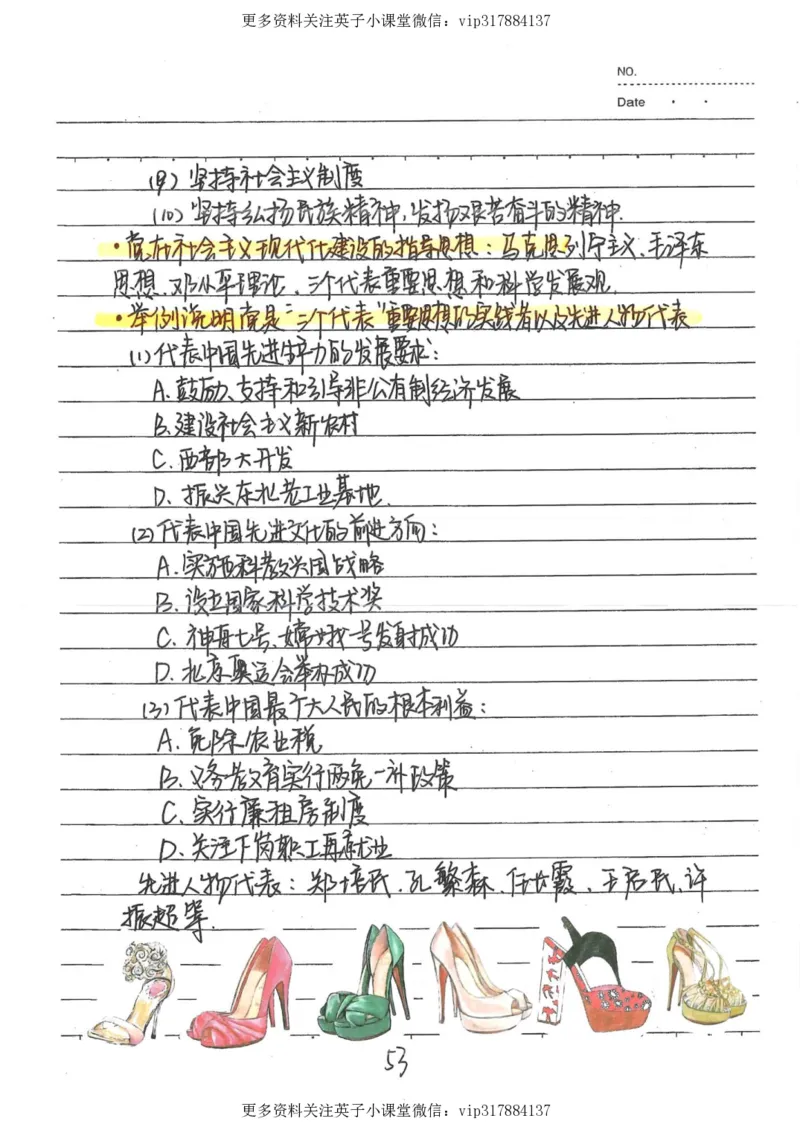 更多资料关注英子小课堂微信：vip317884137
NO.
Date
(9) 坚持社会主义制度
(10) 坚持弘扬民族精神，发扬艰苦奋斗的精神.
·党在社会主义现代化建设的指导思想：马克思列宁主义、毛泽东
思想、邓小平理论、三个代表重要思想和科学发展观.
·举例说明党是“三个代表”重要思想的实践者以及先进人物代表
(1) 代表中国先进生产力的发展要求：
A. 鼓励、支持和引导非公有制经济发展
B. 建设社会主义新农村
C. 西部大开发
D. 振兴东北老工业基地.
(2) 代表中国先进文化的前进方向：
A. 实施科教兴国战略
B. 设立国家科学技术奖
C. 神舟七号、嫦娥一号发射成功
D. 北京奥运会举办成功
(3) 代表中国最广大人民的根本利益：
A. 免除农业税
B. 义务教育实行两免一补政策
C. 实行廉租房制度
D. 关注下岗职工再就业
先进人物代表：郑培民、孔繁森、任长霞、王启民、许
振超等.
53
更多资料关注英子小课堂微信：vip317884137